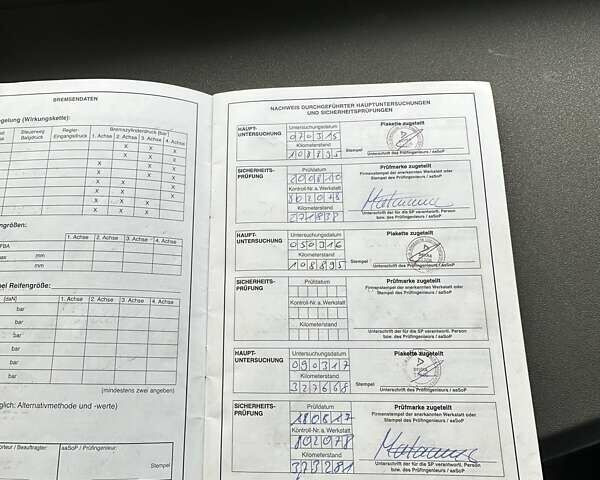 BREMSENDATEN
egelung (Wirkungskette):
Steuerweg Balgdruck
Regler- Eingangsdruck
Bremszylinderdruck (bar)
1. Achse 2. Achse 3. Achse 4. Achse
X X X
X X X
X X X
X X X
X X X
X X X
X X X
größen:
1. Achse 2. Achse 3. Achse 4. Achse
FBA
max mm
mm
bei Reifengröße:
[daN] 1. Achse 2. Achse 3. Achse 4. Achse
bar
bar
bar
bar
bar
bar
(mindestens zwei angeben)
glich: Alternativmethode und -werte)
orteur / Beauftragter: aaSoP / Prüfingenieur:
Stempel
NACHWEIS DURCHGEFÜHRTER HAUPTUNTERSUCHUNGEN
UND SICHERHEITSPRÜFUNGEN
HAUPT-
UNTERSUCHUNG
Untersuchungsdatum
070315
Kilometerstand
Plakette zugeteilt
Stempel
Unterschrift des Prüfingenieurs / aaSoP
SICHERHEITS-
PRÜFUNG
Prüfdatum
Kontroll-Nr. a. Werkstatt
Kilometerstand
271838
Prüfmarke zugeteilt
Firmenstempel der anerkannten Werkstatt oder
Stempel des Prüfingenieurs / aaSoP
Unterschrift der für die SP verantwortl. Person
bzw. des Prüfingenieurs / aaSoP
HAUPT-
UNTERSUCHUNG
Untersuchungsdatum
050316
Kilometerstand
108895
Plakette zugeteilt
Stempel
Unterschrift des Prüfingenieurs / aaSoP
SICHERHEITS-
PRÜFUNG
Prüfdatum
Kontroll-Nr. a. Werkstatt
Kilometerstand
Prüfmarke zugeteilt
Firmenstempel der anerkannten Werkstatt oder
Stempel des Prüfingenieurs / aaSoP
Unterschrift der für die SP verantwortl. Person
bzw. des Prüfingenieurs / aaSoP
HAUPT-
UNTERSUCHUNG
Untersuchungsdatum
090317
Kilometerstand
327668
Plakette zugeteilt
Stempel
Unterschrift des Prüfingenieurs / aaSoP
SICHERHEITS-
PRÜFUNG
Prüfdatum
180617
Kontroll-Nr. a. Werkstatt
802978
Kilometerstand
373281
Prüfmarke zugeteilt
Firmenstempel der anerkannten Werkstatt oder
Stempel des Prüfingenieurs / aaSoP
Unterschrift der für die SP verantwortl. Person
bzw. des Prüfingenieurs / aaSoP